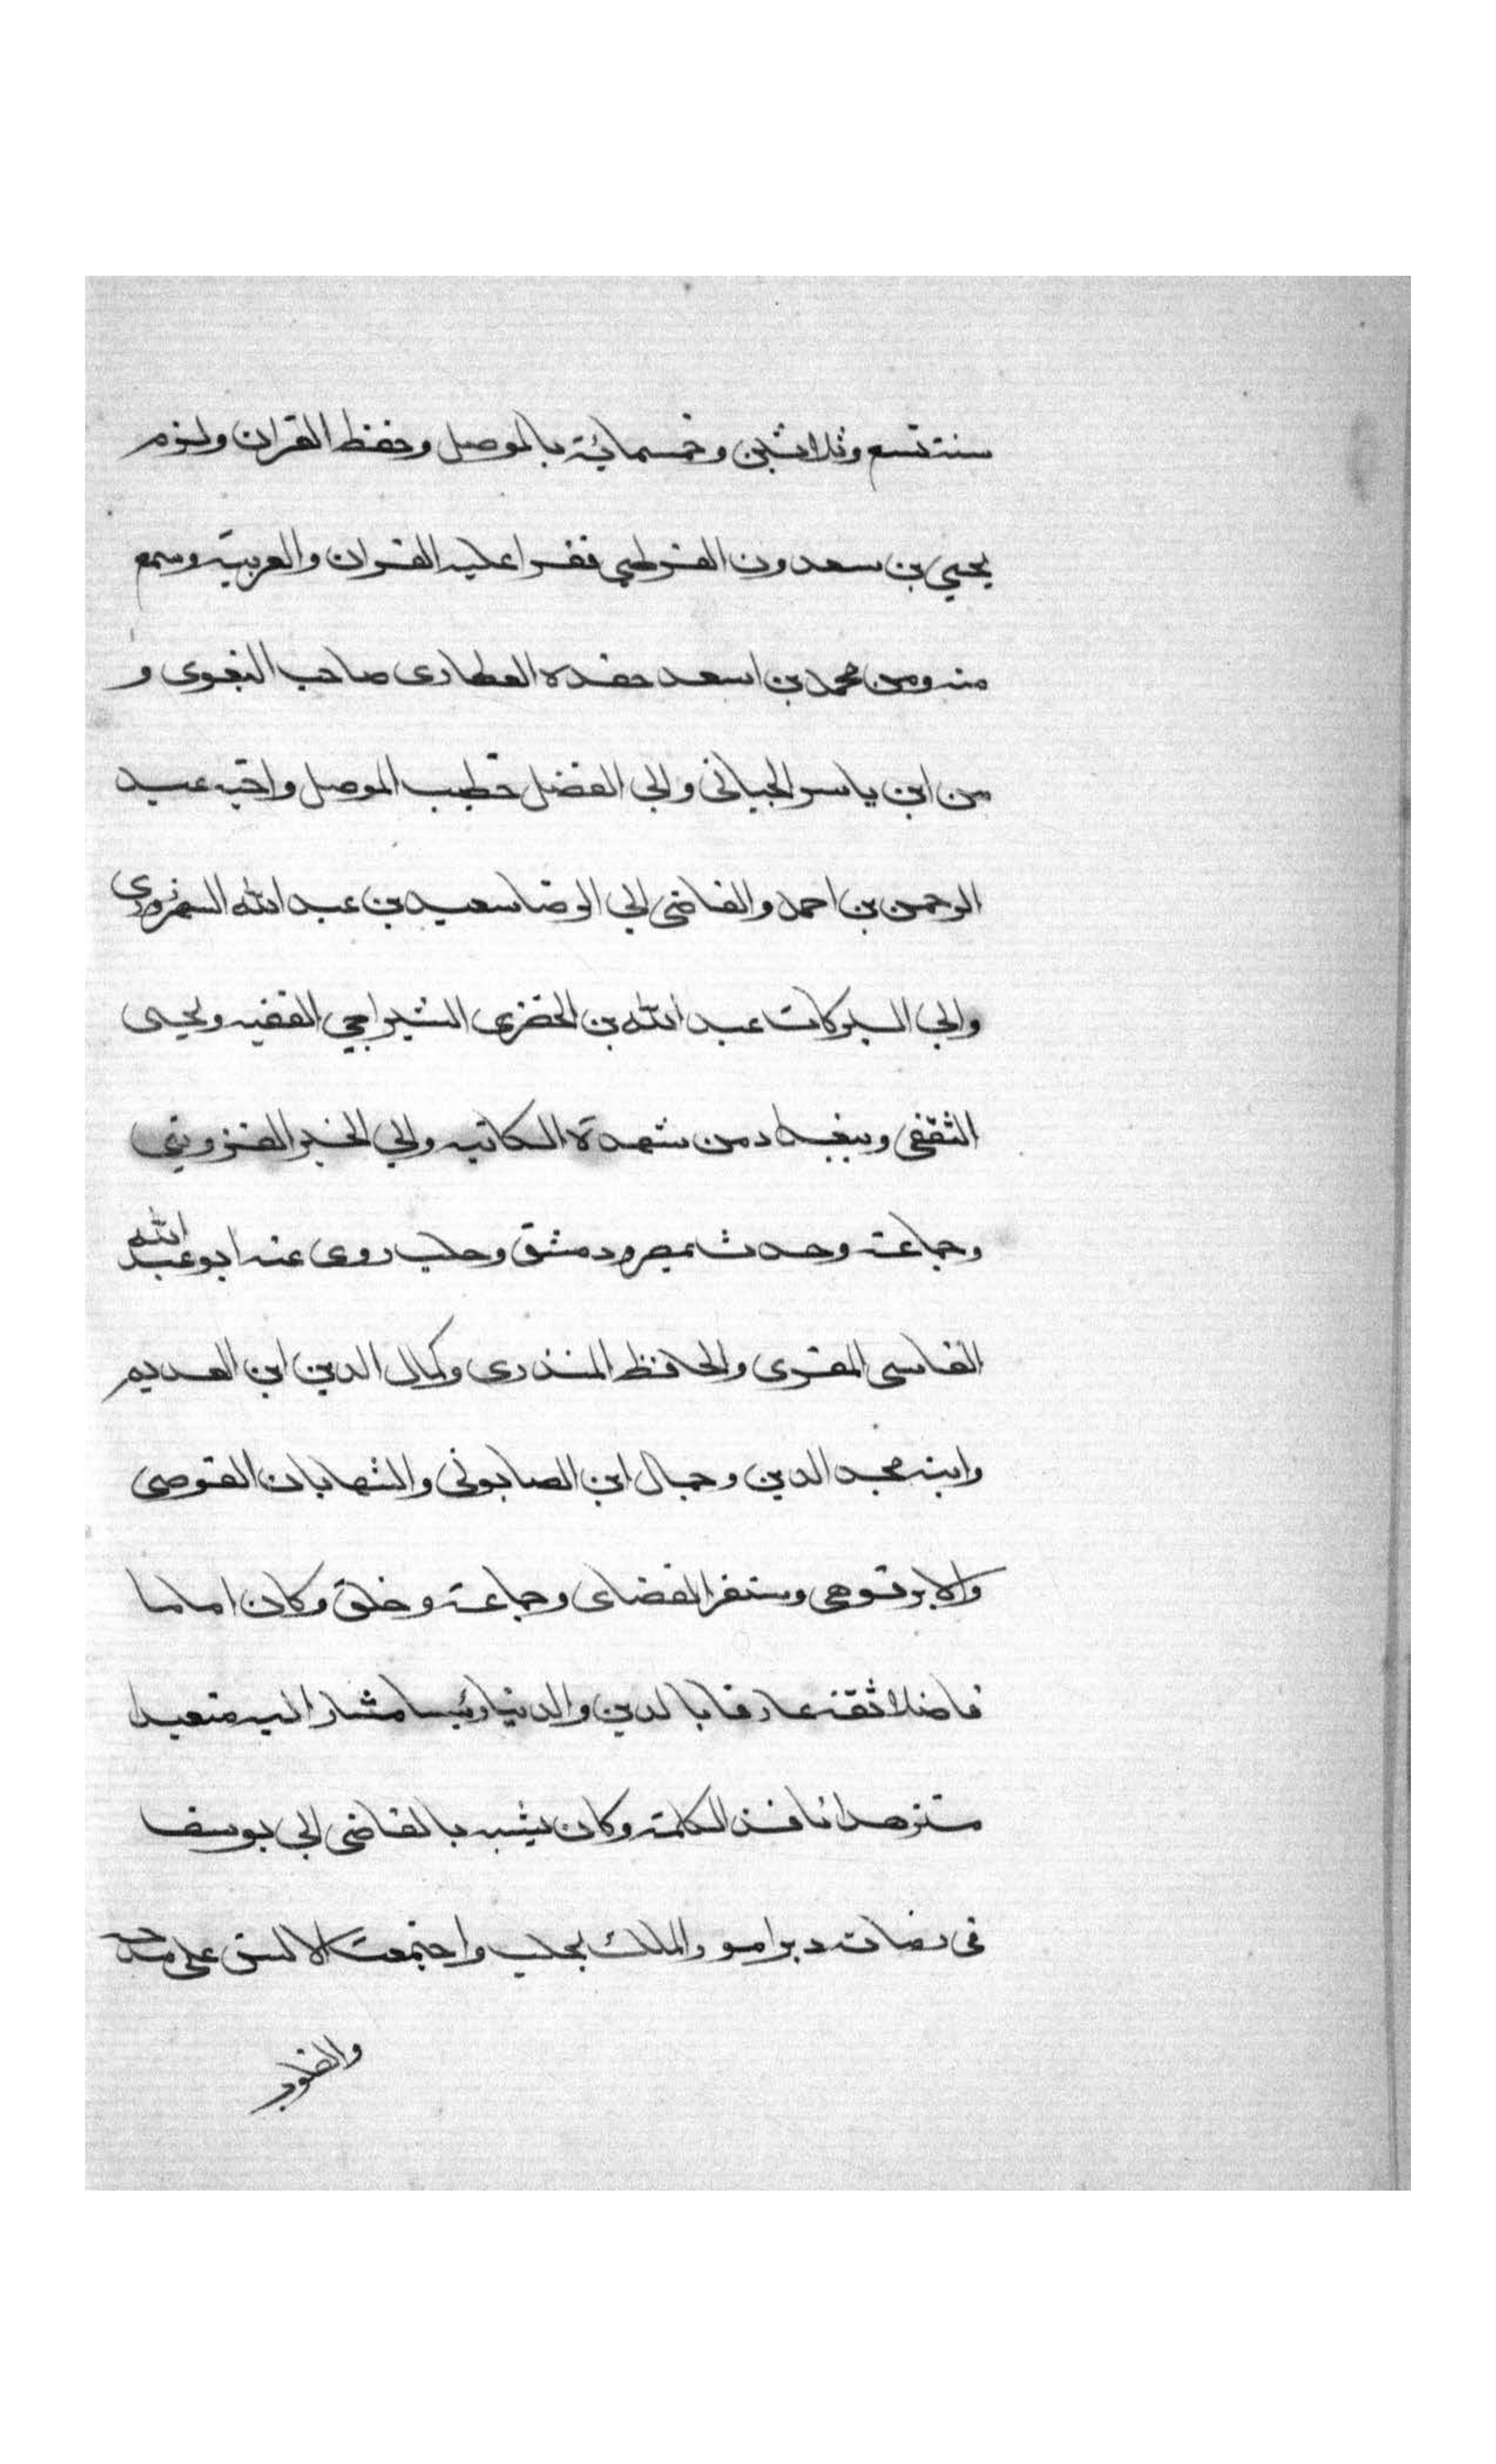 سنة تسع وثلاثين وخمسمائة بالموصل وحفظ القران ولزم
يحيي بن سعدون القرطبي فقرا عليه القران والعربية وسمع
منه ومن محمد بن اسعد حفده العطاري صاحب البغوي و
من ابن ياسر الجياني وابي الفضل خطيب الموصل واخيه عبد
الرحمن بن احمد والقاضي ابي الرضا سعيد بن عبد الله الشهرزوري
وابي البركات عبد الله بن الخضري الشيرجي الفقيه ويحيى
الثقفي وببغداد من شهدة الكاتبه وابي الخير القزويني
وجماعة وحدث بمصر ودمشق وحلب روى عنه ابو عبد الله
الفاسي المقري والحافظ المنذري وكمال الدين ابن العديم
وابنه مجد الدين وجمال ابن الصابوني والشهابان القوصي
والابرقوهي وسنقر القضاي وجماعة وخلق وكان اماما
فاضلا ثقة عارفا بالدين والدنيا رئيسا مشارا اليه متعبدا
متزهدا نافذ الكلمة وكان يشبه بالقاضي ابي يوسف
في زمانه دبر امور الملك بحلب واجتمعت الالسن على مدحه
والقلوب